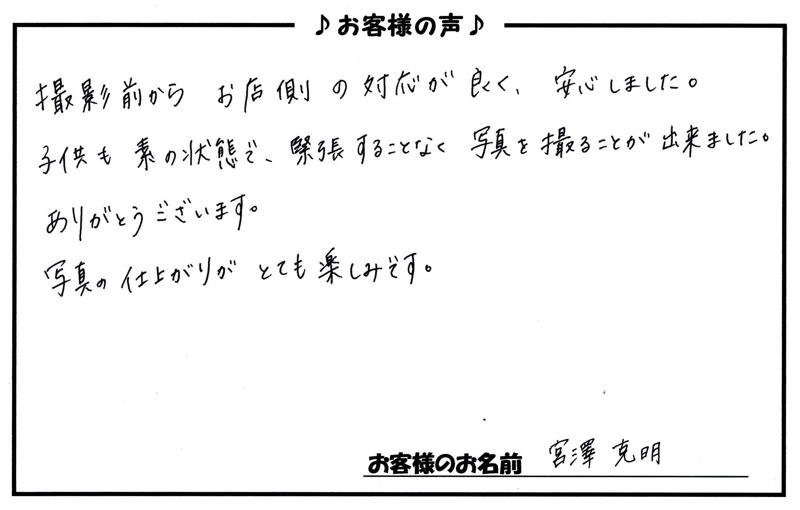 ♪お客様の声♪
撮影前から お店側の対応が良く、安心しました。
子供も素の状態で、緊張することなく写真を撮ることが出来ました。
ありがとうございます。
写真の仕上がりがとても楽しみです。
お客様のお名前 宮澤 克明